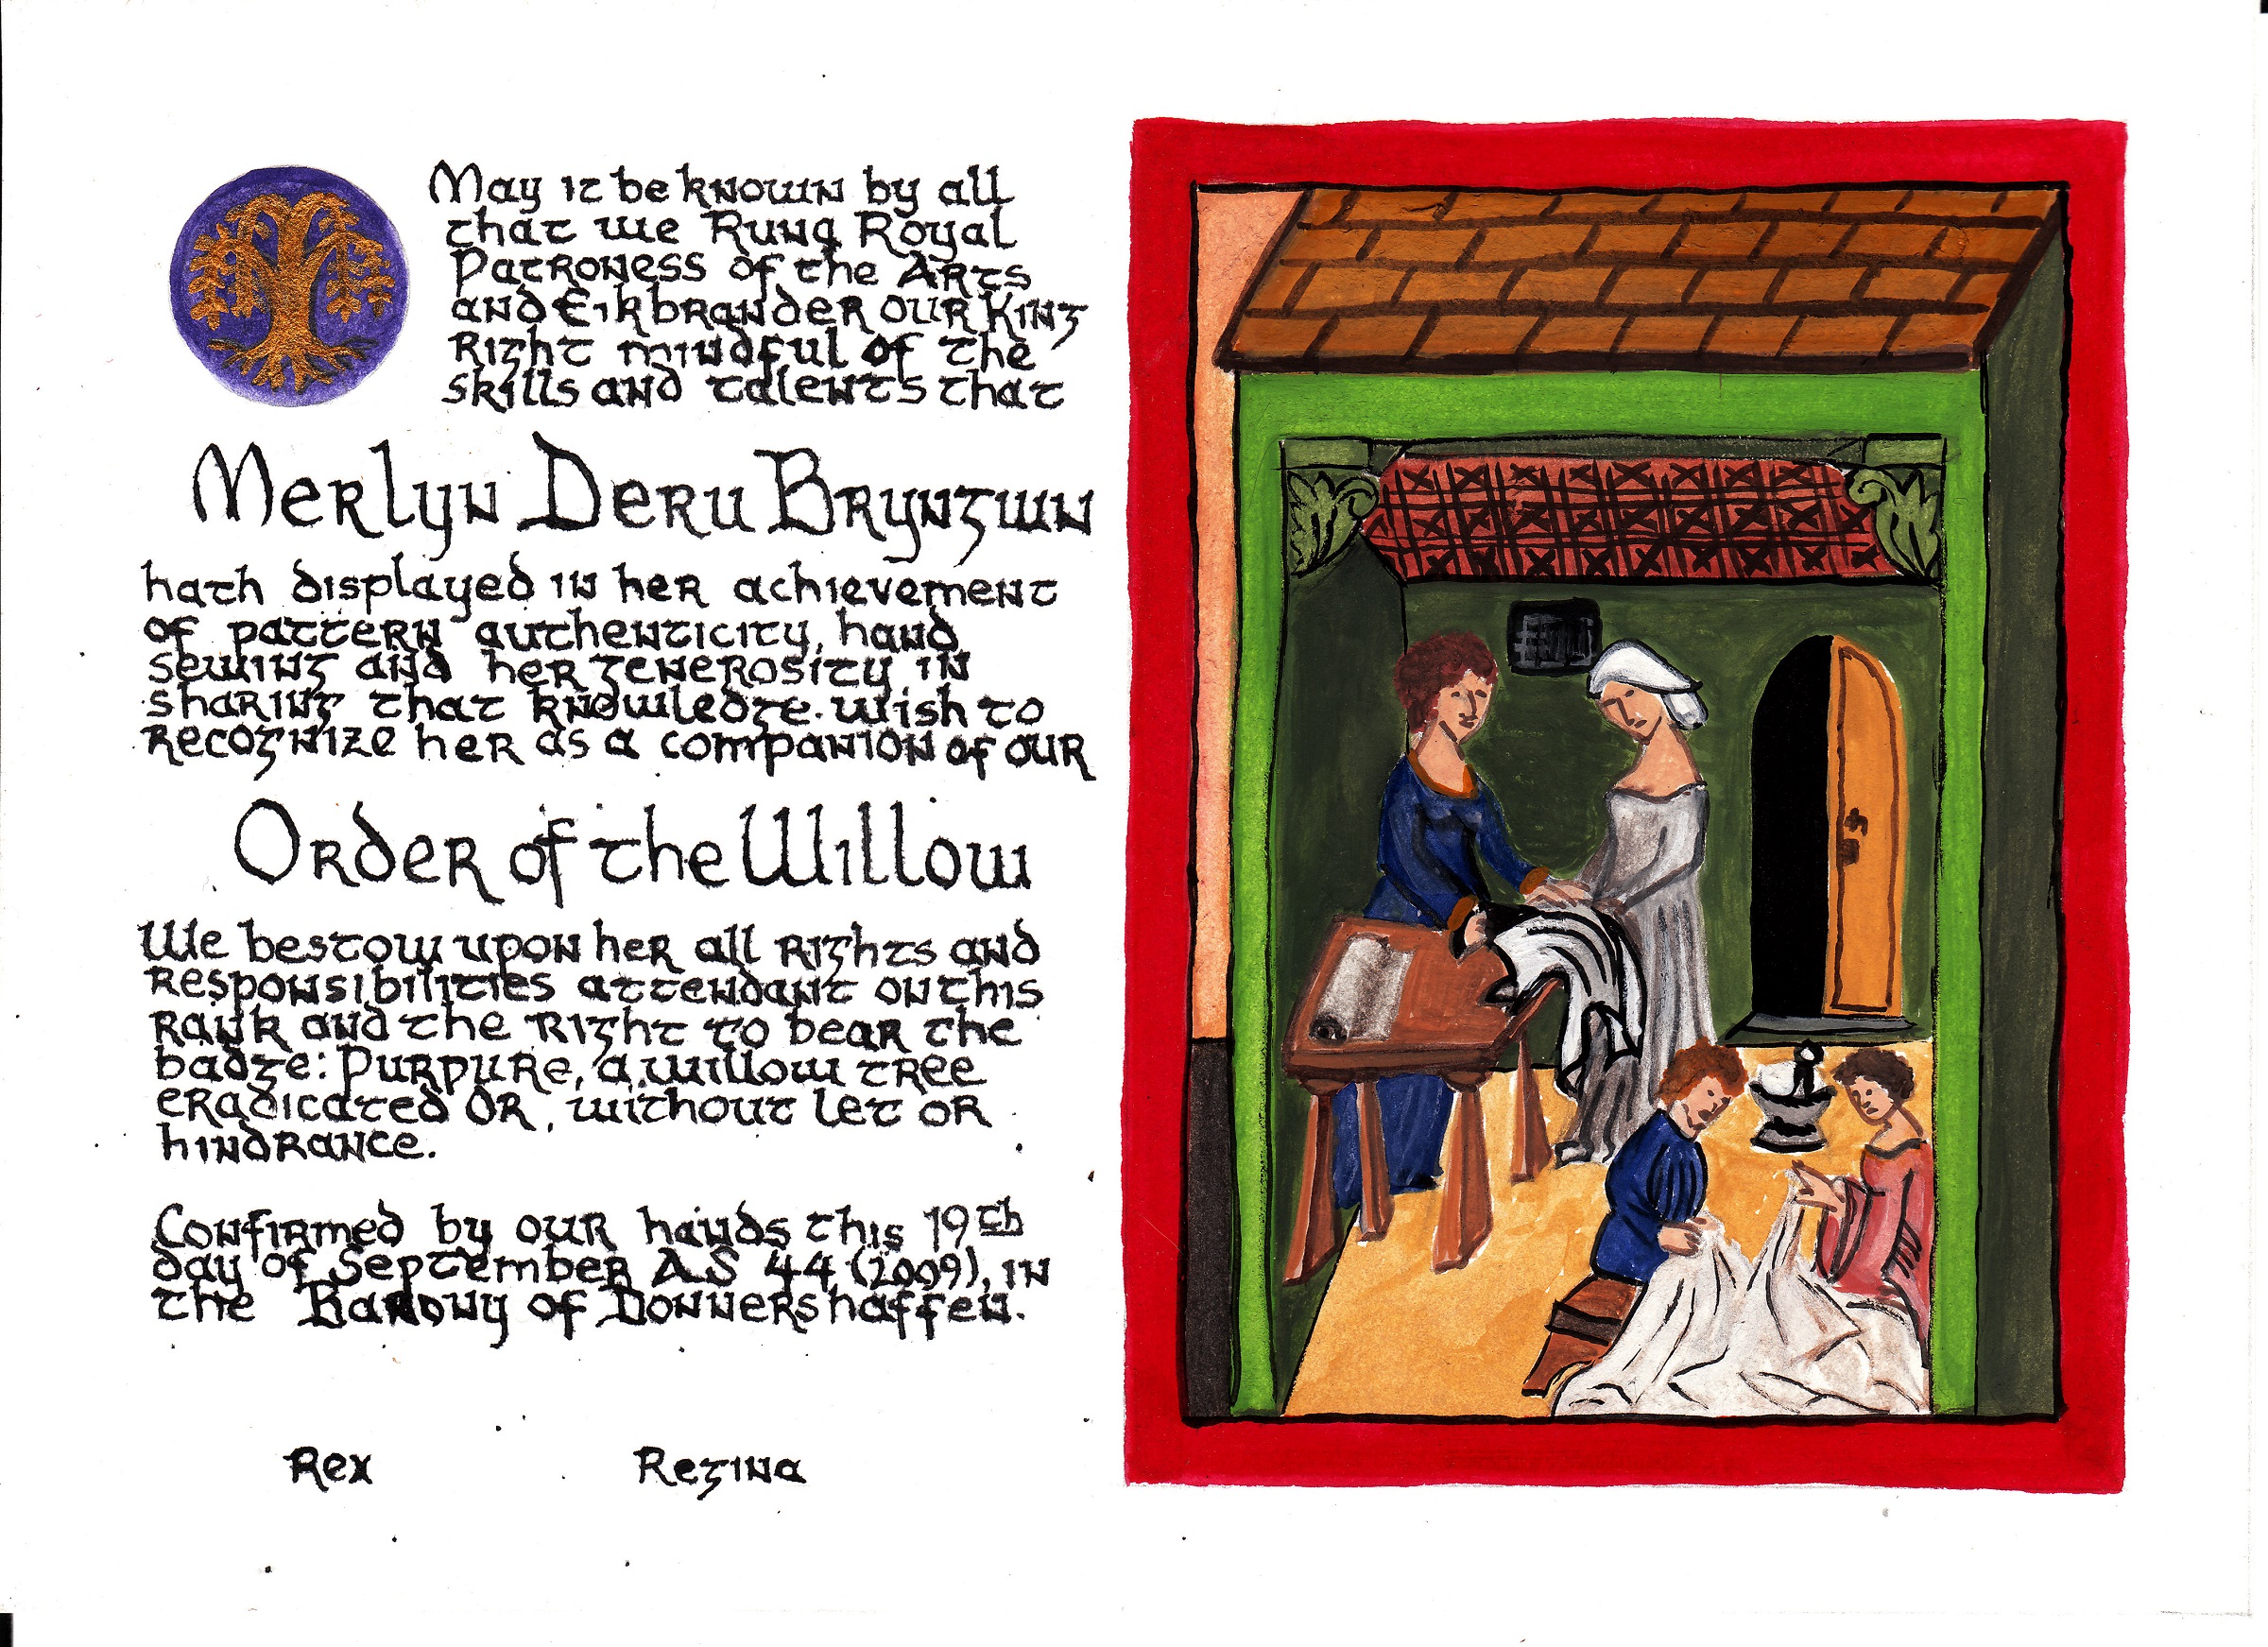 May it be known by all
that we Runa Royal
Patroness of the Arts
and Eikbrander our King
right mindful of the
skills and talents that
Merlyn Deru Bryngwn
hath displayed in her achievement
of pattern authenticity, hand
sewing and her generosity in
sharing that knowledge. wish to
recognize her as a companion of our
Order of the Willow
We bestow upon her all rights and
responsibilities attendant on this
rank and the right to bear the
badge: Purpure, a willow tree
eradicated Or, without let or
hindrance.
Confirmed by our hands this 19th
day of September AS 44 (2009), in
the Barony of Donnershaffen.
Rex Regina